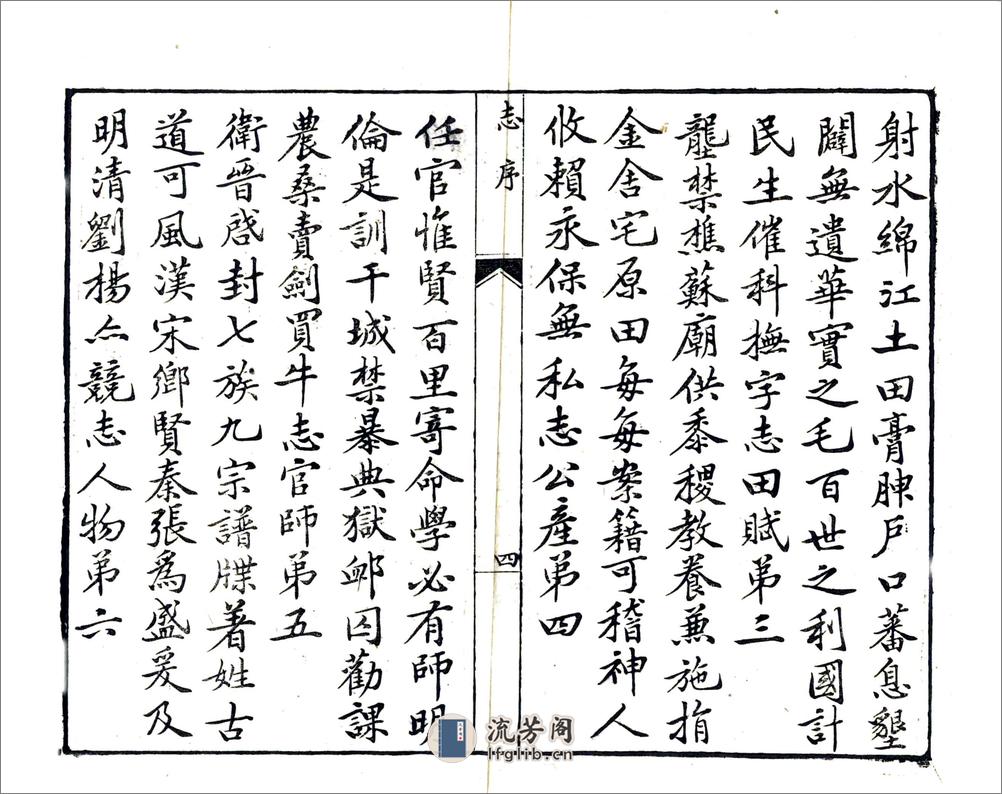 射水綿江土田膏腴戶口蕃息墾
闢無遺華實之毛百世之利國計
民生催科撫字志田賦第三
壟禁樵蘇廟供黍稷教養兼施指
金舍宅原田每每案籍可稽神人
攸賴永保無私志公產第四
志序
四
任官惟賢百里寄命學必有師明
倫是訓干城禁暴典獄卹囚勸課
農桑賣劍買牛志官師第五
衛晉啓封七族九宗譜牒著姓古
道可風漢宋鄉賢秦張爲盛爰及
明清劉楊亦競志人物第六
流芳阁
lfglib.cn